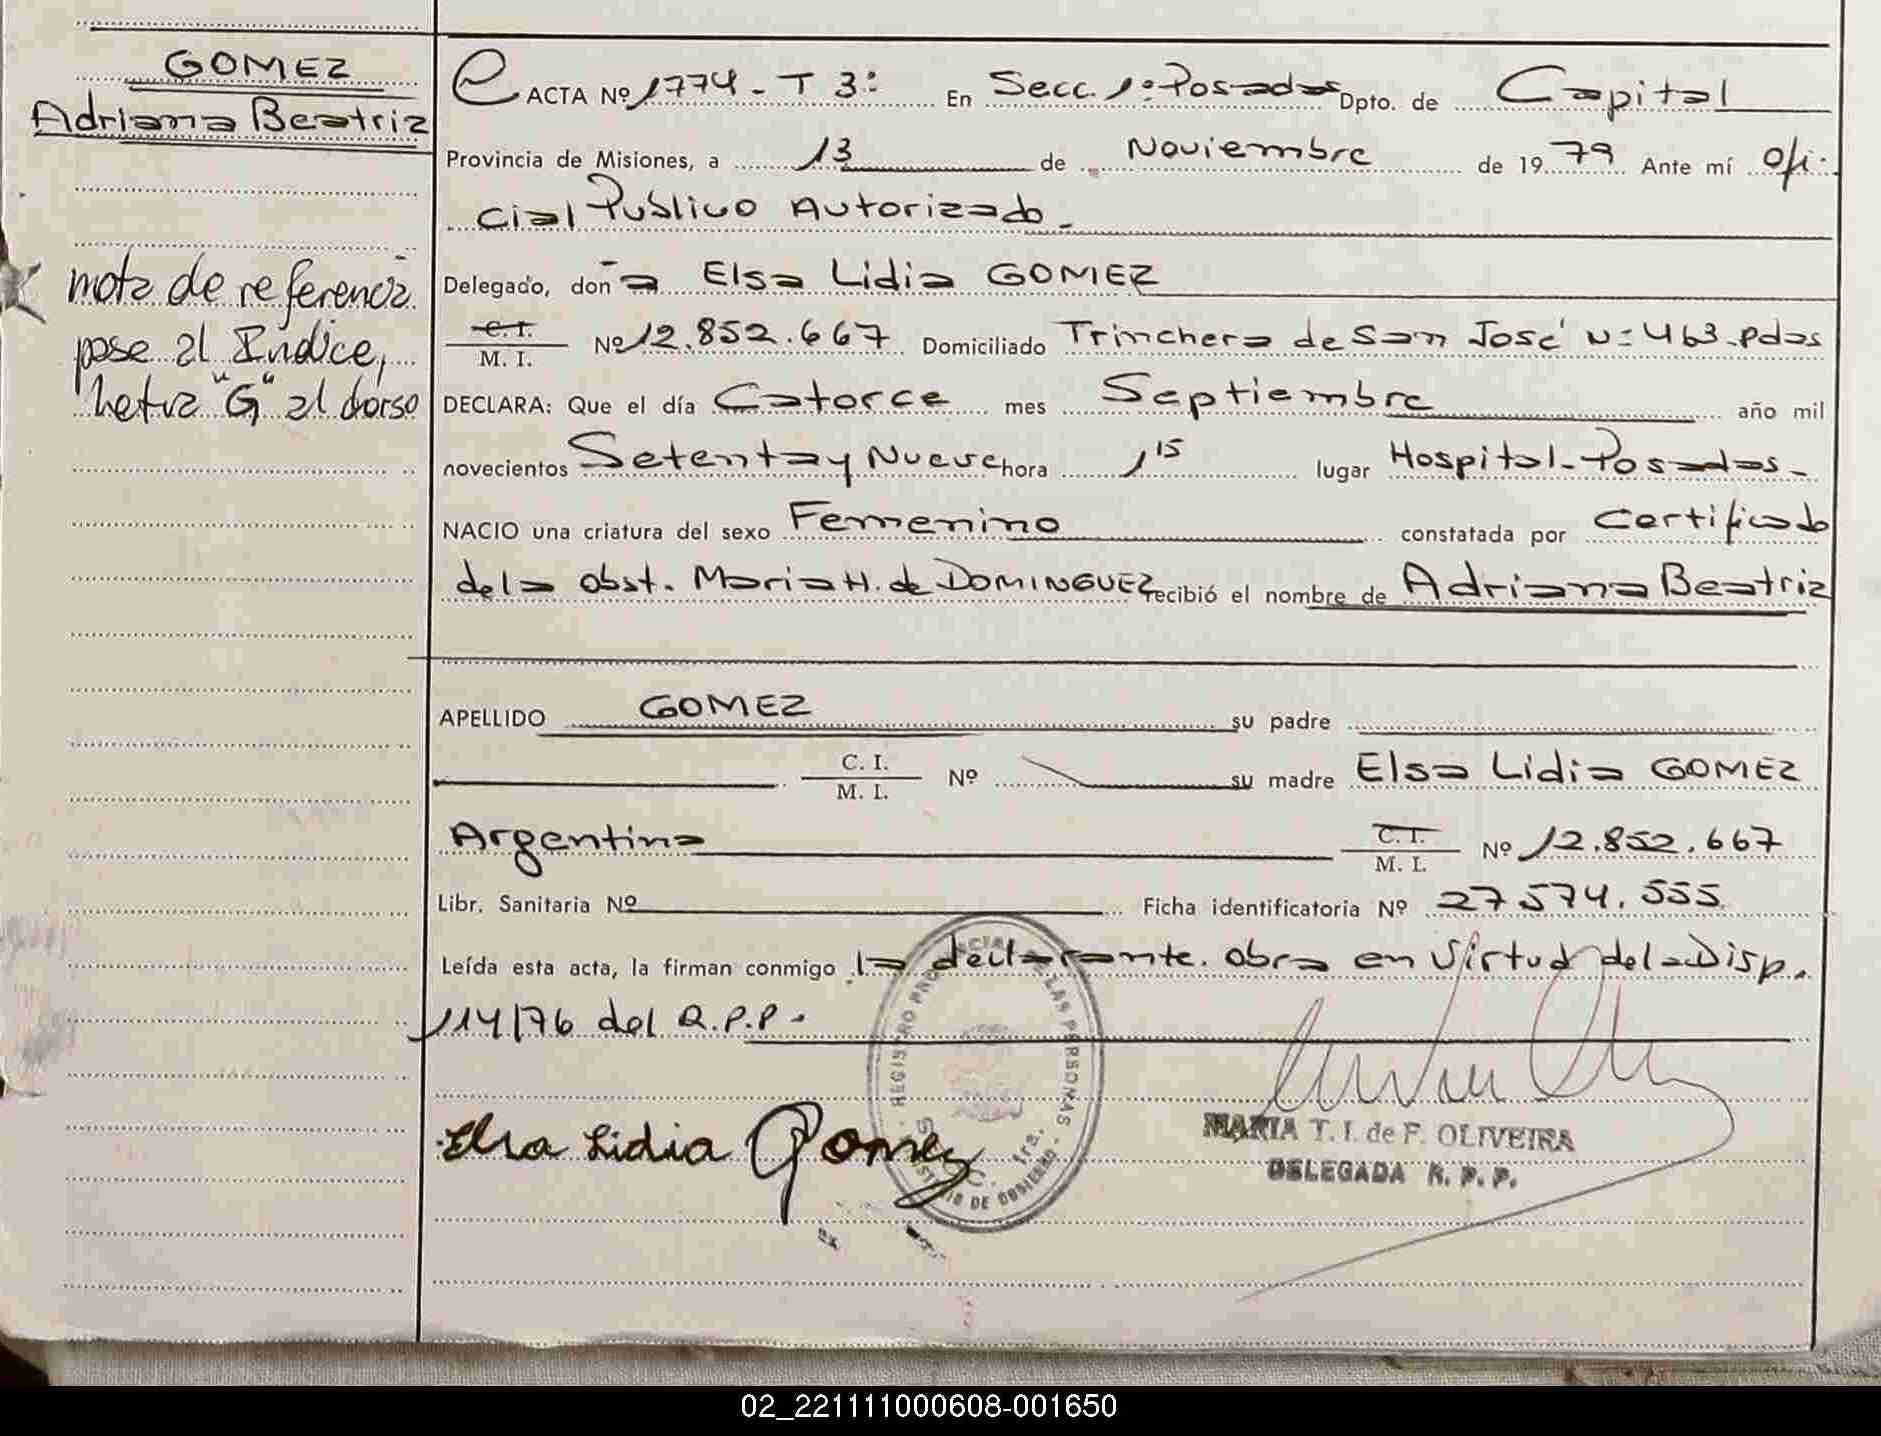 GOMEZ
Adriana Beatriz
nota de referencia
pase al Indice,
Letra "G" al dorso
ACTA Nº 1774 - T 3: En Secc. 1º Posadas Dpto. de Capital
Provincia de Misiones, a 13 de Noviembre de 19 79 Ante mí Ofi-
cial Publico Autorizado -
Delegado, don a Elsa Lidia GOMEZ
C. I.
M. I. Nº 12.852.667 Domiciliado Trinchera de San José Nº 463 - Pdas
DECLARA: Que el día Catorce mes Septiembre año mil
novecientos Setenta y Nueve hora 1 15 lugar Hospital - Posadas -
NACIO una criatura del sexo Femenino constatada por Certificado
de la Obst. Maria H. de DOMINGUEZ recibió el nombre de Adriana Beatriz
APELLIDO GOMEZ su padre
C. I.
M. I. Nº su madre Elsa Lidia GOMEZ
Argentina C. I.
M. I. Nº 12.852.667
Libr. Sanitaria Nº Ficha identificatoria Nº 27.574.555
Leída esta acta, la firman conmigo la declarante. Obra en Virtud de la Disp.
114/76 del R.P.P.-
REGISTRO PROVINCIAL DE LAS PERSONAS
MINISTERIO DE GOBIERNO
Elsa Lidia Gomez
MARIA T. I. de F. OLIVEIRA
DELEGADA R. P. P.
02_221111000608-001650